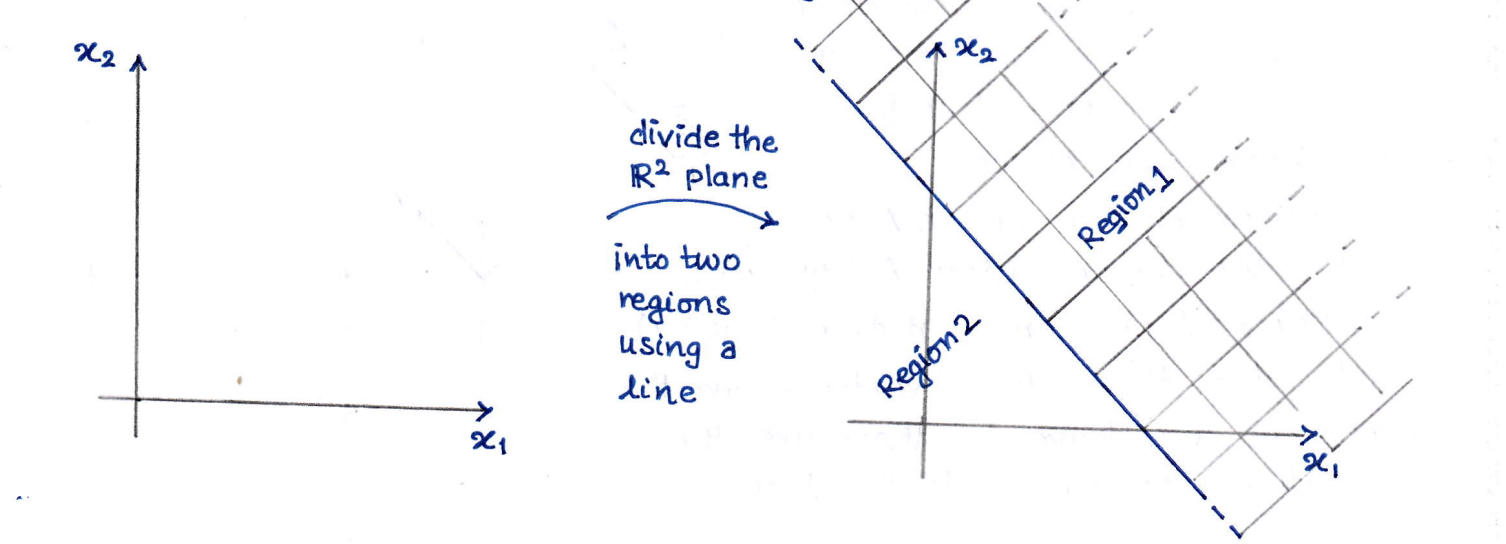 x₂
x₁
divide the
ℝ² plane
into two
regions
using a
line
x₂
Region 1
Region 2
x₁